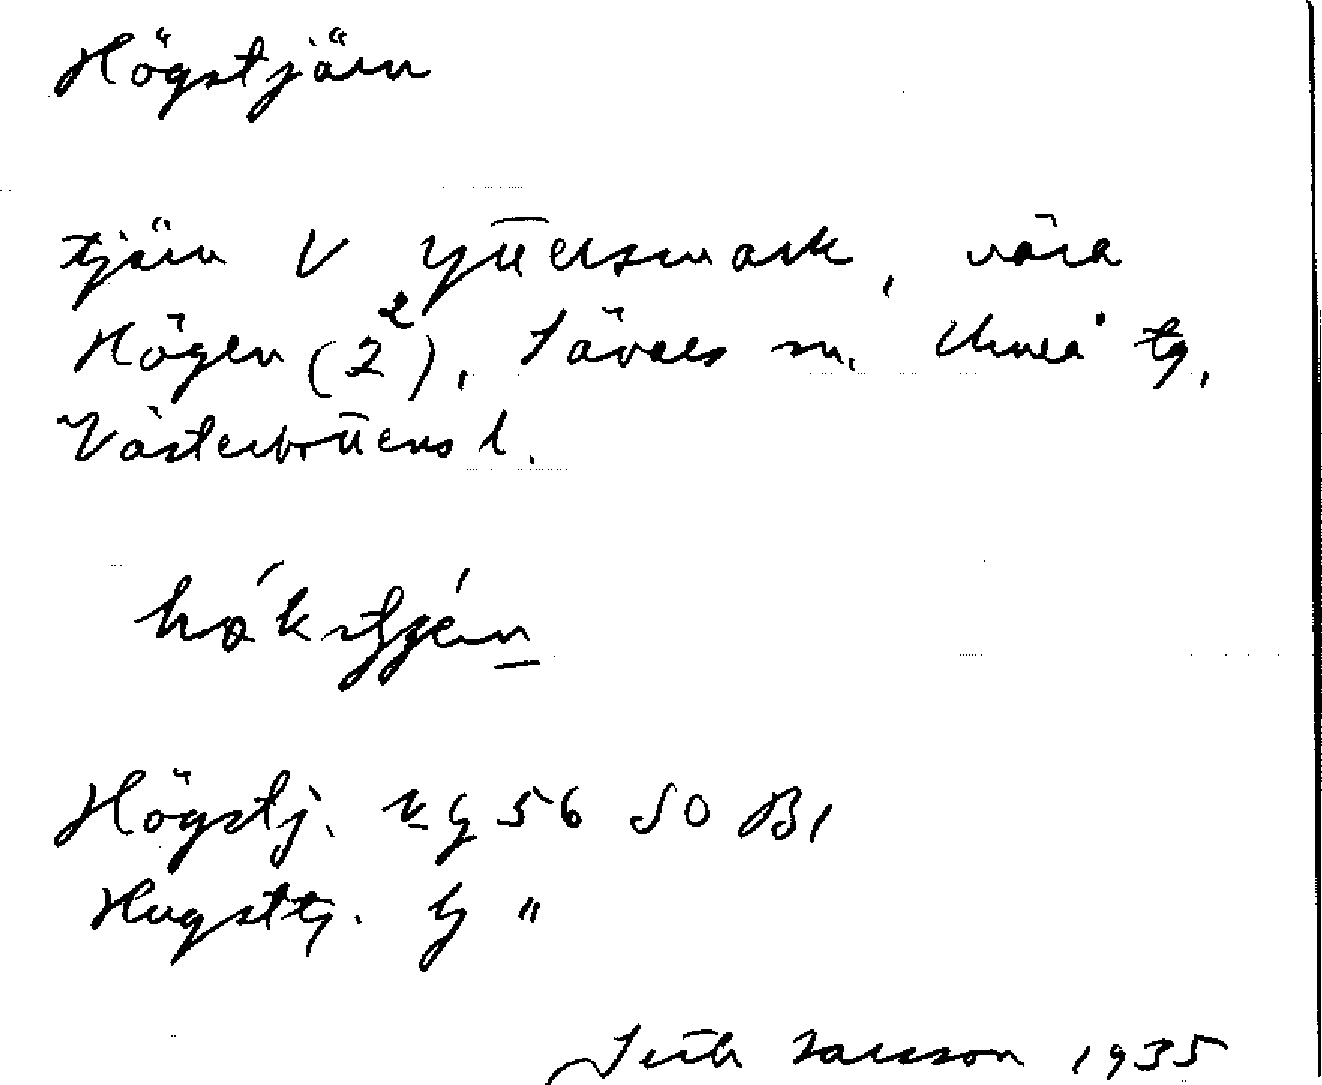 Högstjärn
tjärn V Yttersmark, nära
Högen (2²), Sävars sn. Umeå tg,
Västerbottens l.
Högstj. 56 SO B1
Hugsttj. "
Larsson 1935